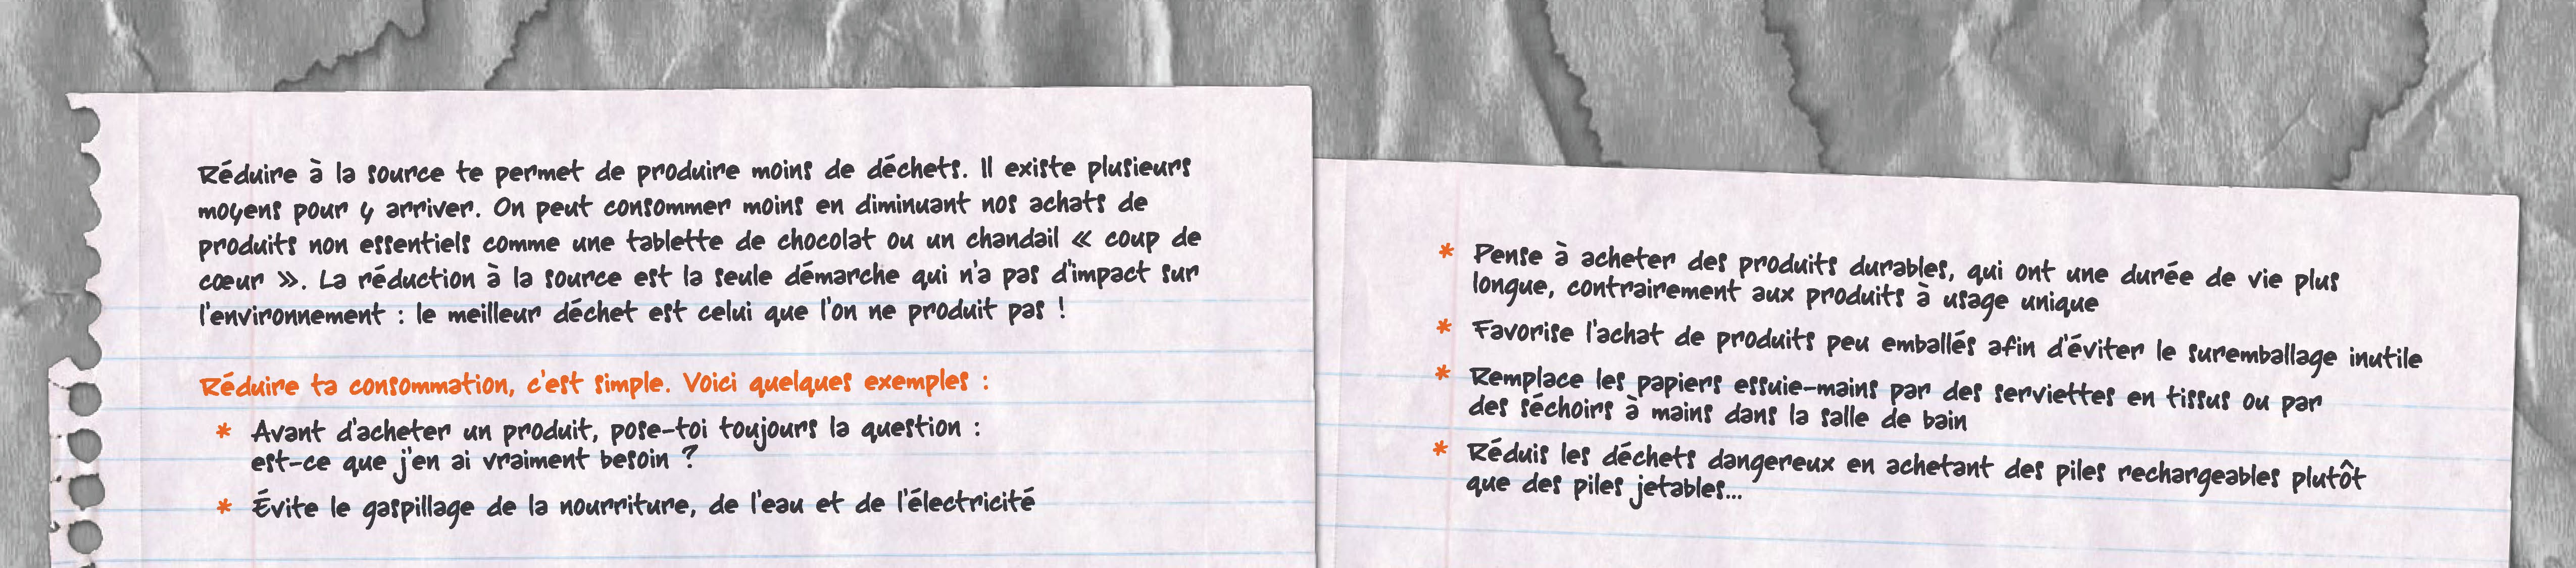 Réduire à la source te permet de produire moins de déchets. Il existe plusieurs
moyens pour y arriver. On peut consommer moins en diminuant nos achats de
produits non essentiels comme une tablette de chocolat ou un chandail « coup de
cœur ». La réduction à la source est la seule démarche qui n'a pas d'impact sur
l'environnement : le meilleur déchet est celui que l'on ne produit pas !
Réduire ta consommation, c'est simple. Voici quelques exemples :
* Avant d'acheter un produit, pose-toi toujours la question :
est-ce que j'en ai vraiment besoin ?
* Évite le gaspillage de la nourriture, de l'eau et de l'électricité
* Pense à acheter des produits durables, qui ont une durée de vie plus
longue, contrairement aux produits à usage unique
* Favorise l'achat de produits peu emballés afin d'éviter le suremballage inutile
* Remplace les papiers essuie-mains par des serviettes en tissus ou par
des séchoirs à mains dans la salle de bain
* Réduis les déchets dangereux en achetant des piles rechargeables plutôt
que des piles jetables...